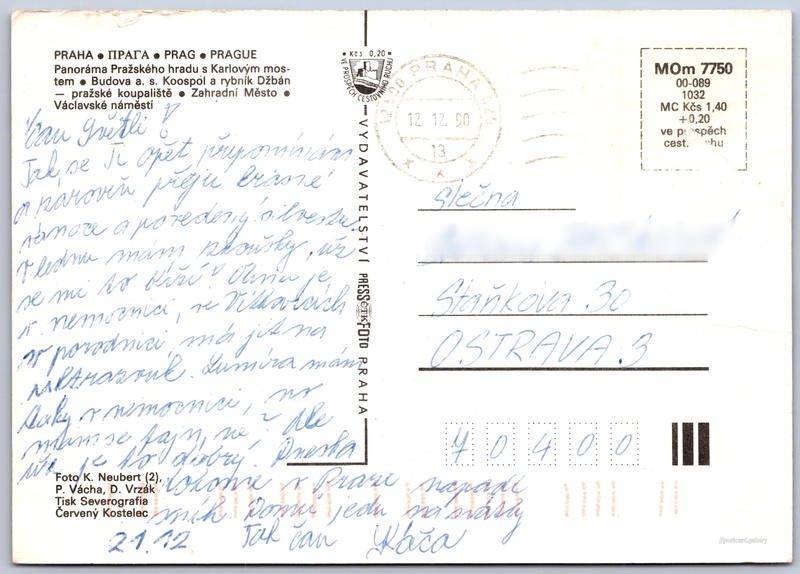 PRAHA • ПРАГА • PRAG • PRAGUE
Panoráma Pražského hradu s Karlovým mos-
tem • Budova a. s. Koospol a rybník Džbán
— pražské koupaliště • Zahradní Město •
Václavské náměstí
Čau Světli!
Tak se Ti opět připomínám
a zároveň přeju krásné
vánoce a povedený silvestr.
V lednu mám zkoušky, už
se mi to blíží! je
v nemocnici, ve Vítkovicích
v porodnici, má jít na
ultrazvuk. mám
taky v nemocnici, no
mám se fajn, ne? Ale
už je to dobrý. Dneska
v Praze napadl
sníh. Domů jedu na svátky
21.12. Tak čau Káča
Foto K. Neubert (2),
P. Vácha, D. Vrzák
Tisk Severografia
Červený Kostelec
Kčs 0,20
VE PROSPĚCH CESTOVNÍHO RUCHU
VYDAVATELSTVÍ PRESSFOTO PRAHA
ČTK
PRAHA
12.12.90
13
MOm 7750
00-089
1032
MC Kčs 1,40
+0,20
ve prospěch
cest. ruchu
Slečna
Staňkova 30
OSTRAVA 3
70400
//postcard.gallery